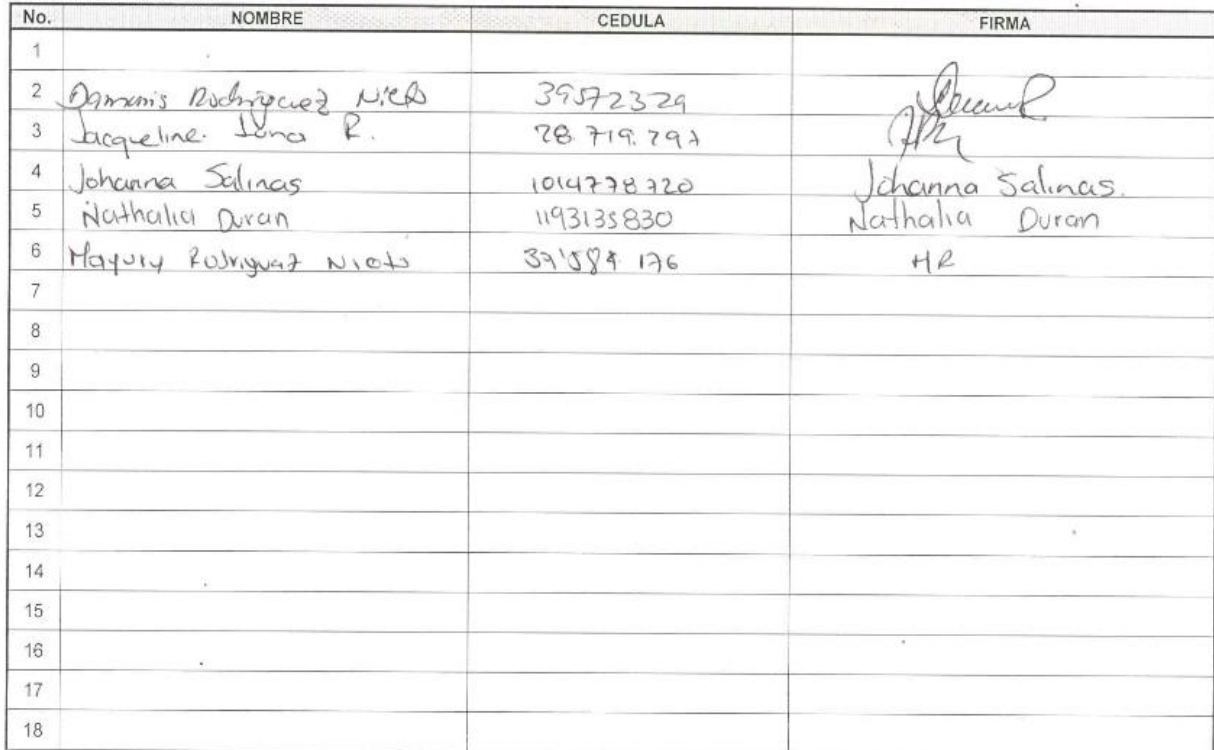 No. NOMBRE CEDULA FIRMA
1
2 Rodriguez Nieto 39572329
3 Jacqueline. Luna R. 28.719.297
4 Johanna Salinas 1014778720 Johanna Salinas.
5 Nathalia Duran 1193135830 Nathalia Duran
6 Mayury Rodriguez Nieto 176 MR
7
8
9
10
11
12
13
14
15
16
17
18